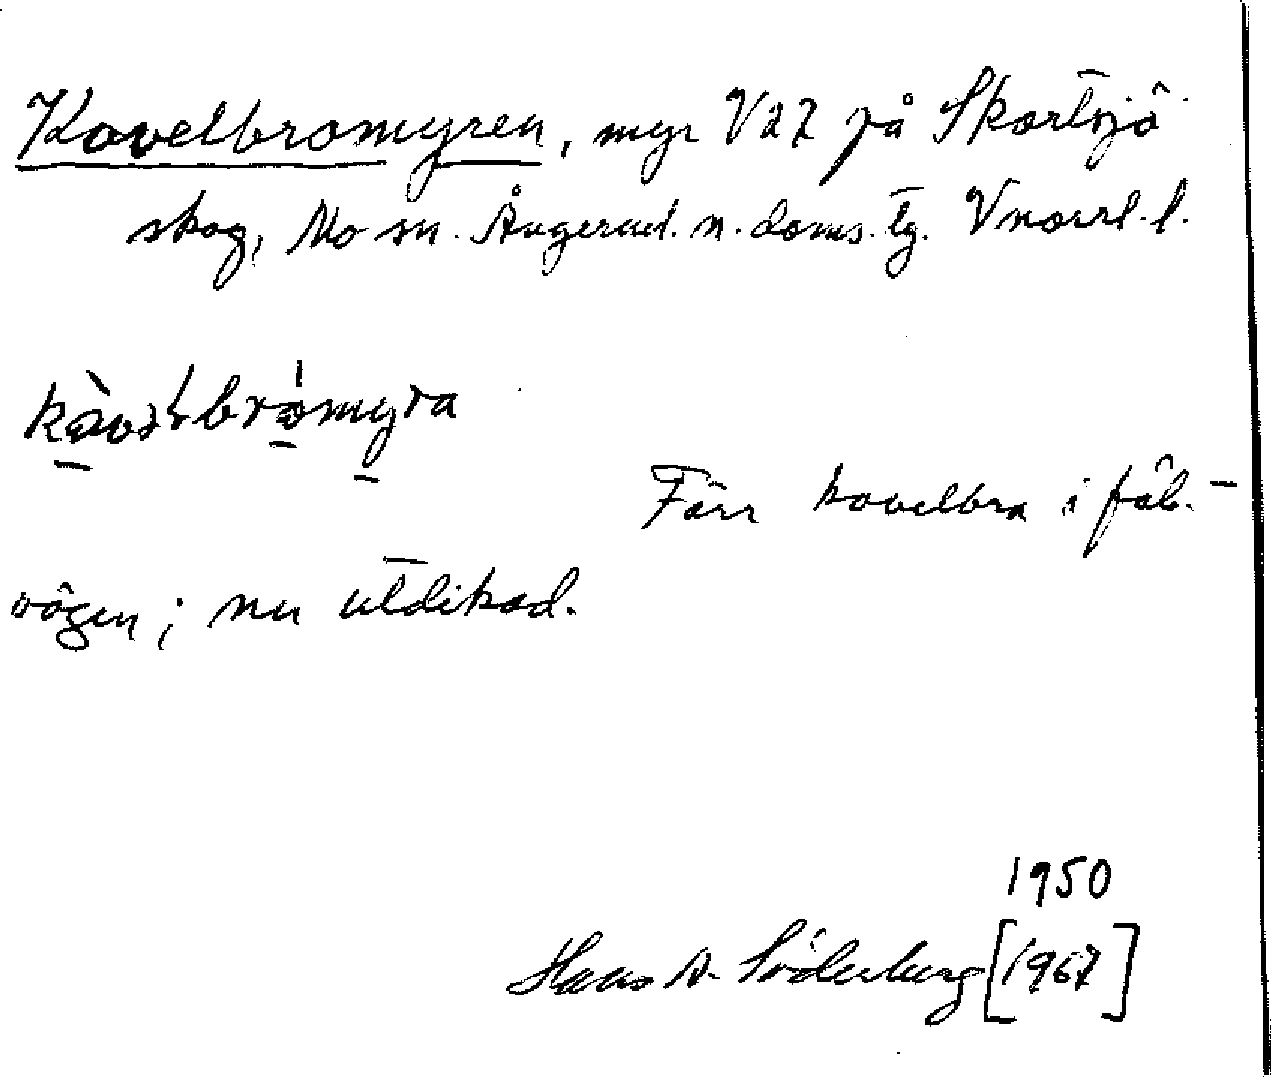 Kavelbromyren, myr V27 på Skortsjö
skog, Mo sn. Ångerml. n. doms. tg. Vnorrl. l.
Förr kavelbro i fäb.-
vägen; nu utdikad.
1950
Hans A. Söderberg [1967]